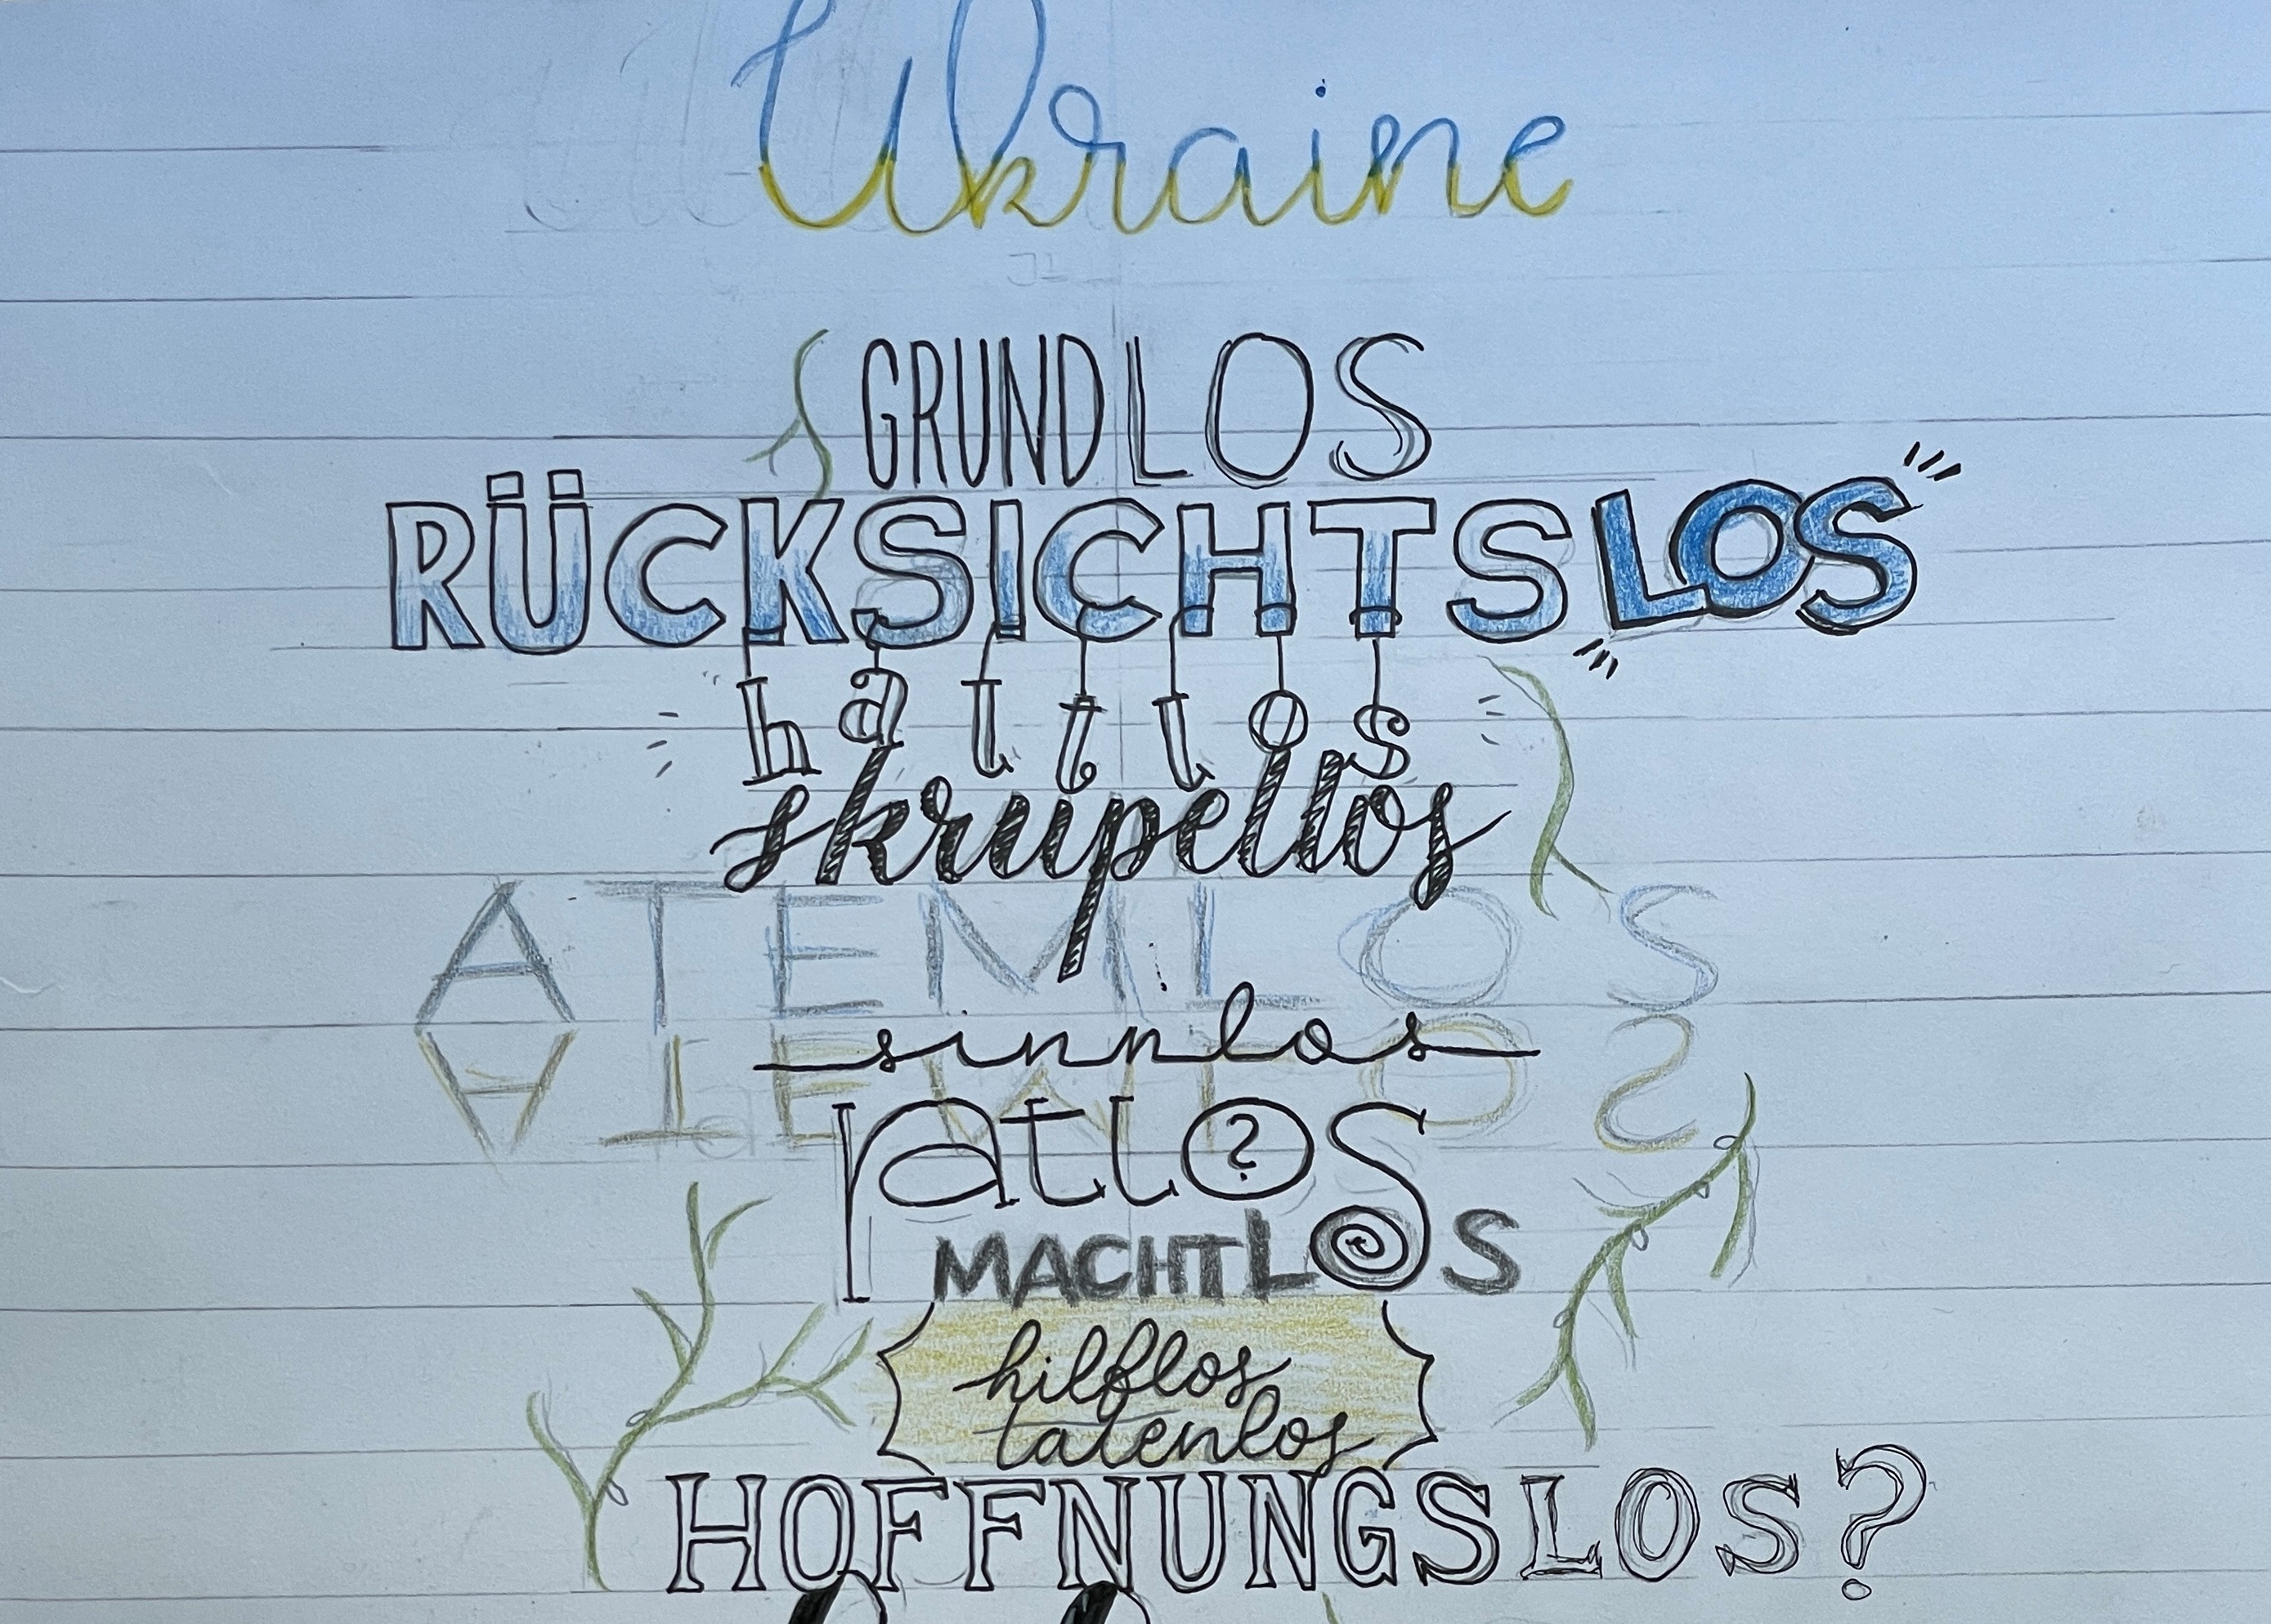 Ukraine
GRUNDLOS
RÜCKSICHTSLOS
haltlos
skrupellos
ATEMLOS
sinnlos
ratlos
MACHTLOS
hilflos
tatenlos
HOFFNUNGSLOS?